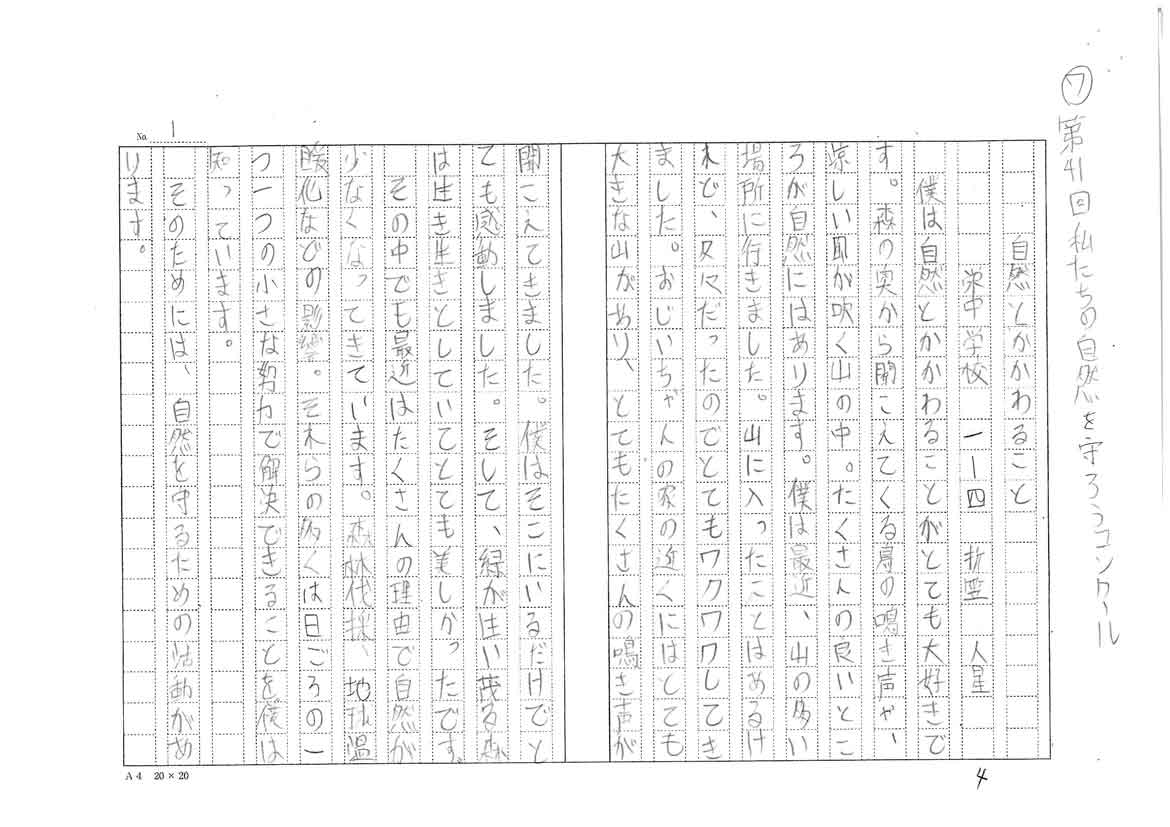 ㋆ 第41回私たちの自然を守ろうコンクール
自然とかかわること
栄中学校 一ー四 折笠 人星
僕は自然とかかわることがとても大好きで
す。森の奥から聞こえてくる鳥の鳴き声や、
涼しい風が吹く山の中。たくさんの良いとこ
ろが自然にはあります。僕は最近、山の多い
場所に行きました。山に入ったことはあるけ
れど、久々だったのでとてもワクワクしてき
ました。おじいちゃんの家の近くにはとても
大きな山があり、とてもたくさんの鳴き声が
聞こえてきました。僕はそこにいるだけでと
ても感動しました。そして、緑が生い茂る森
は生き生きとしていてとても美しかったです。
その中でも最近はたくさんの理由で自然が
少なくなってきています。森林伐採、地球温
暖化などの影響。それらの多くは日ごろの一
つ一つの小さな努力で解決できることを僕は
知っています。
そのためには、自然を守るための活動があ
ります。
No. 1
A4 20×20
4